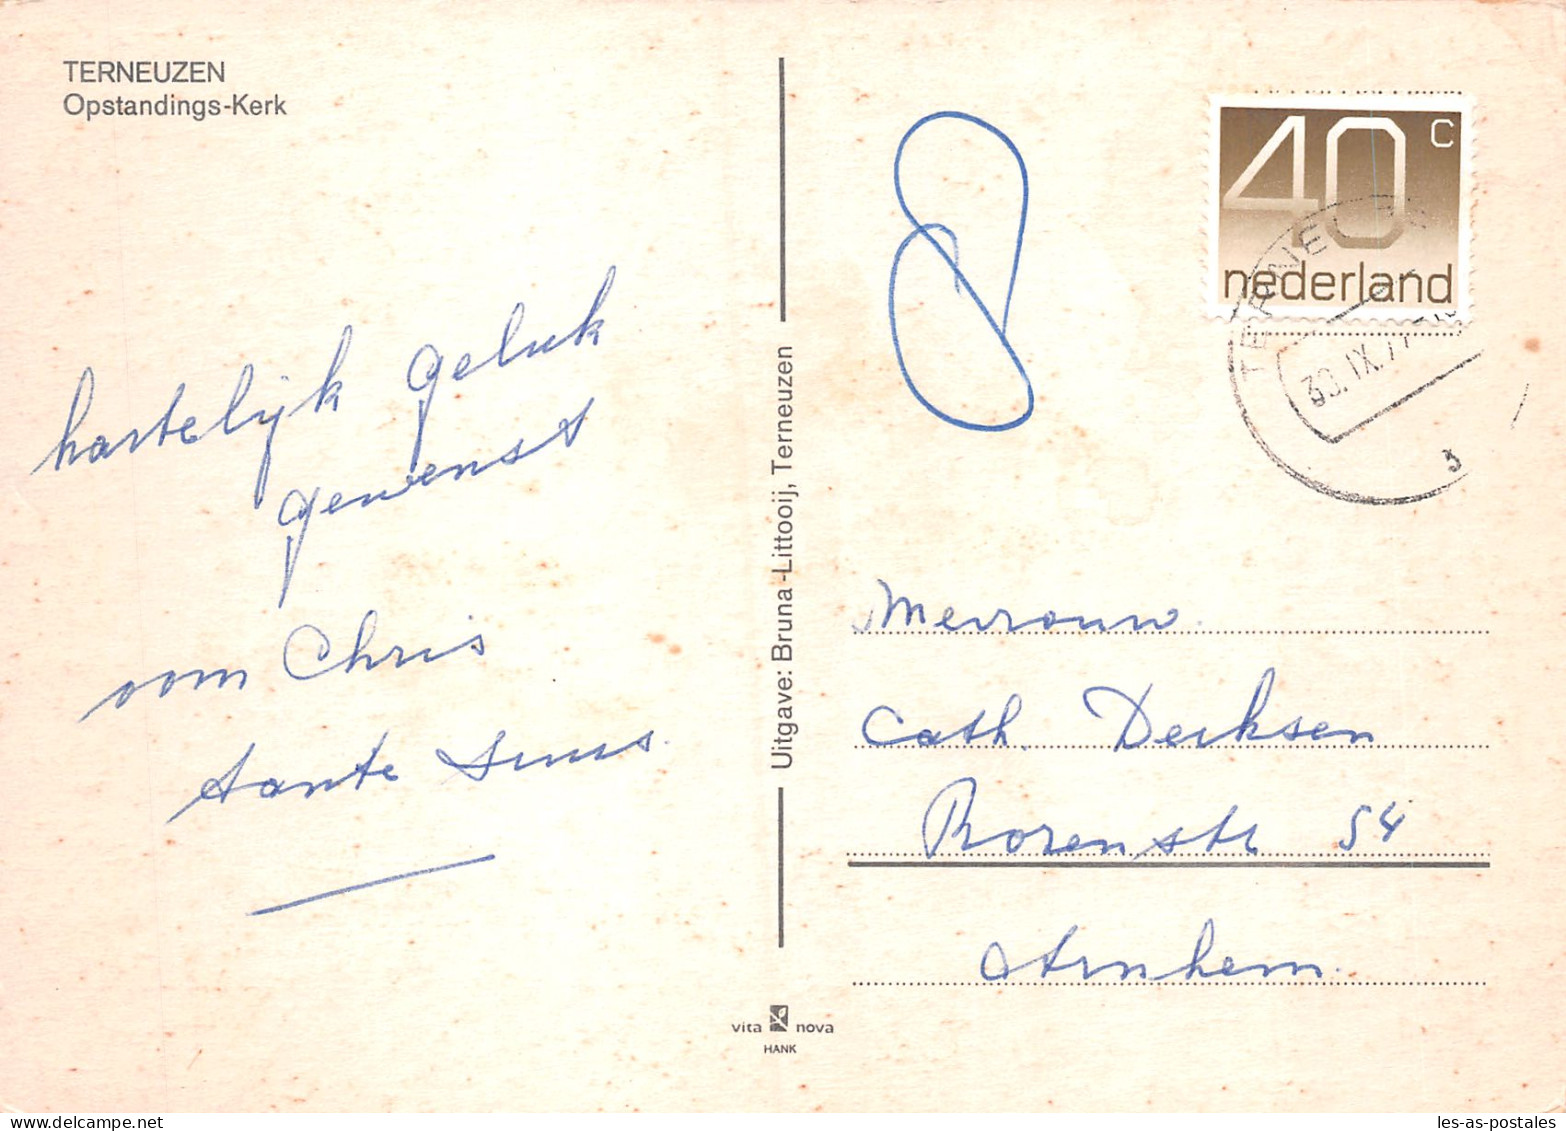 TERNEUZEN
Opstandings-Kerk
hartelijk geluk
gewenst
oom Chris
tante Suus.
Uitgave: Bruna-Littooij, Terneuzen
vita nova
HANK
40 c
nederland
TERNEUZEN
30.IX.7
3
Mevrouw.
Cath. Derksen
Rozenstr 54
Arnhem.
les-as-postales